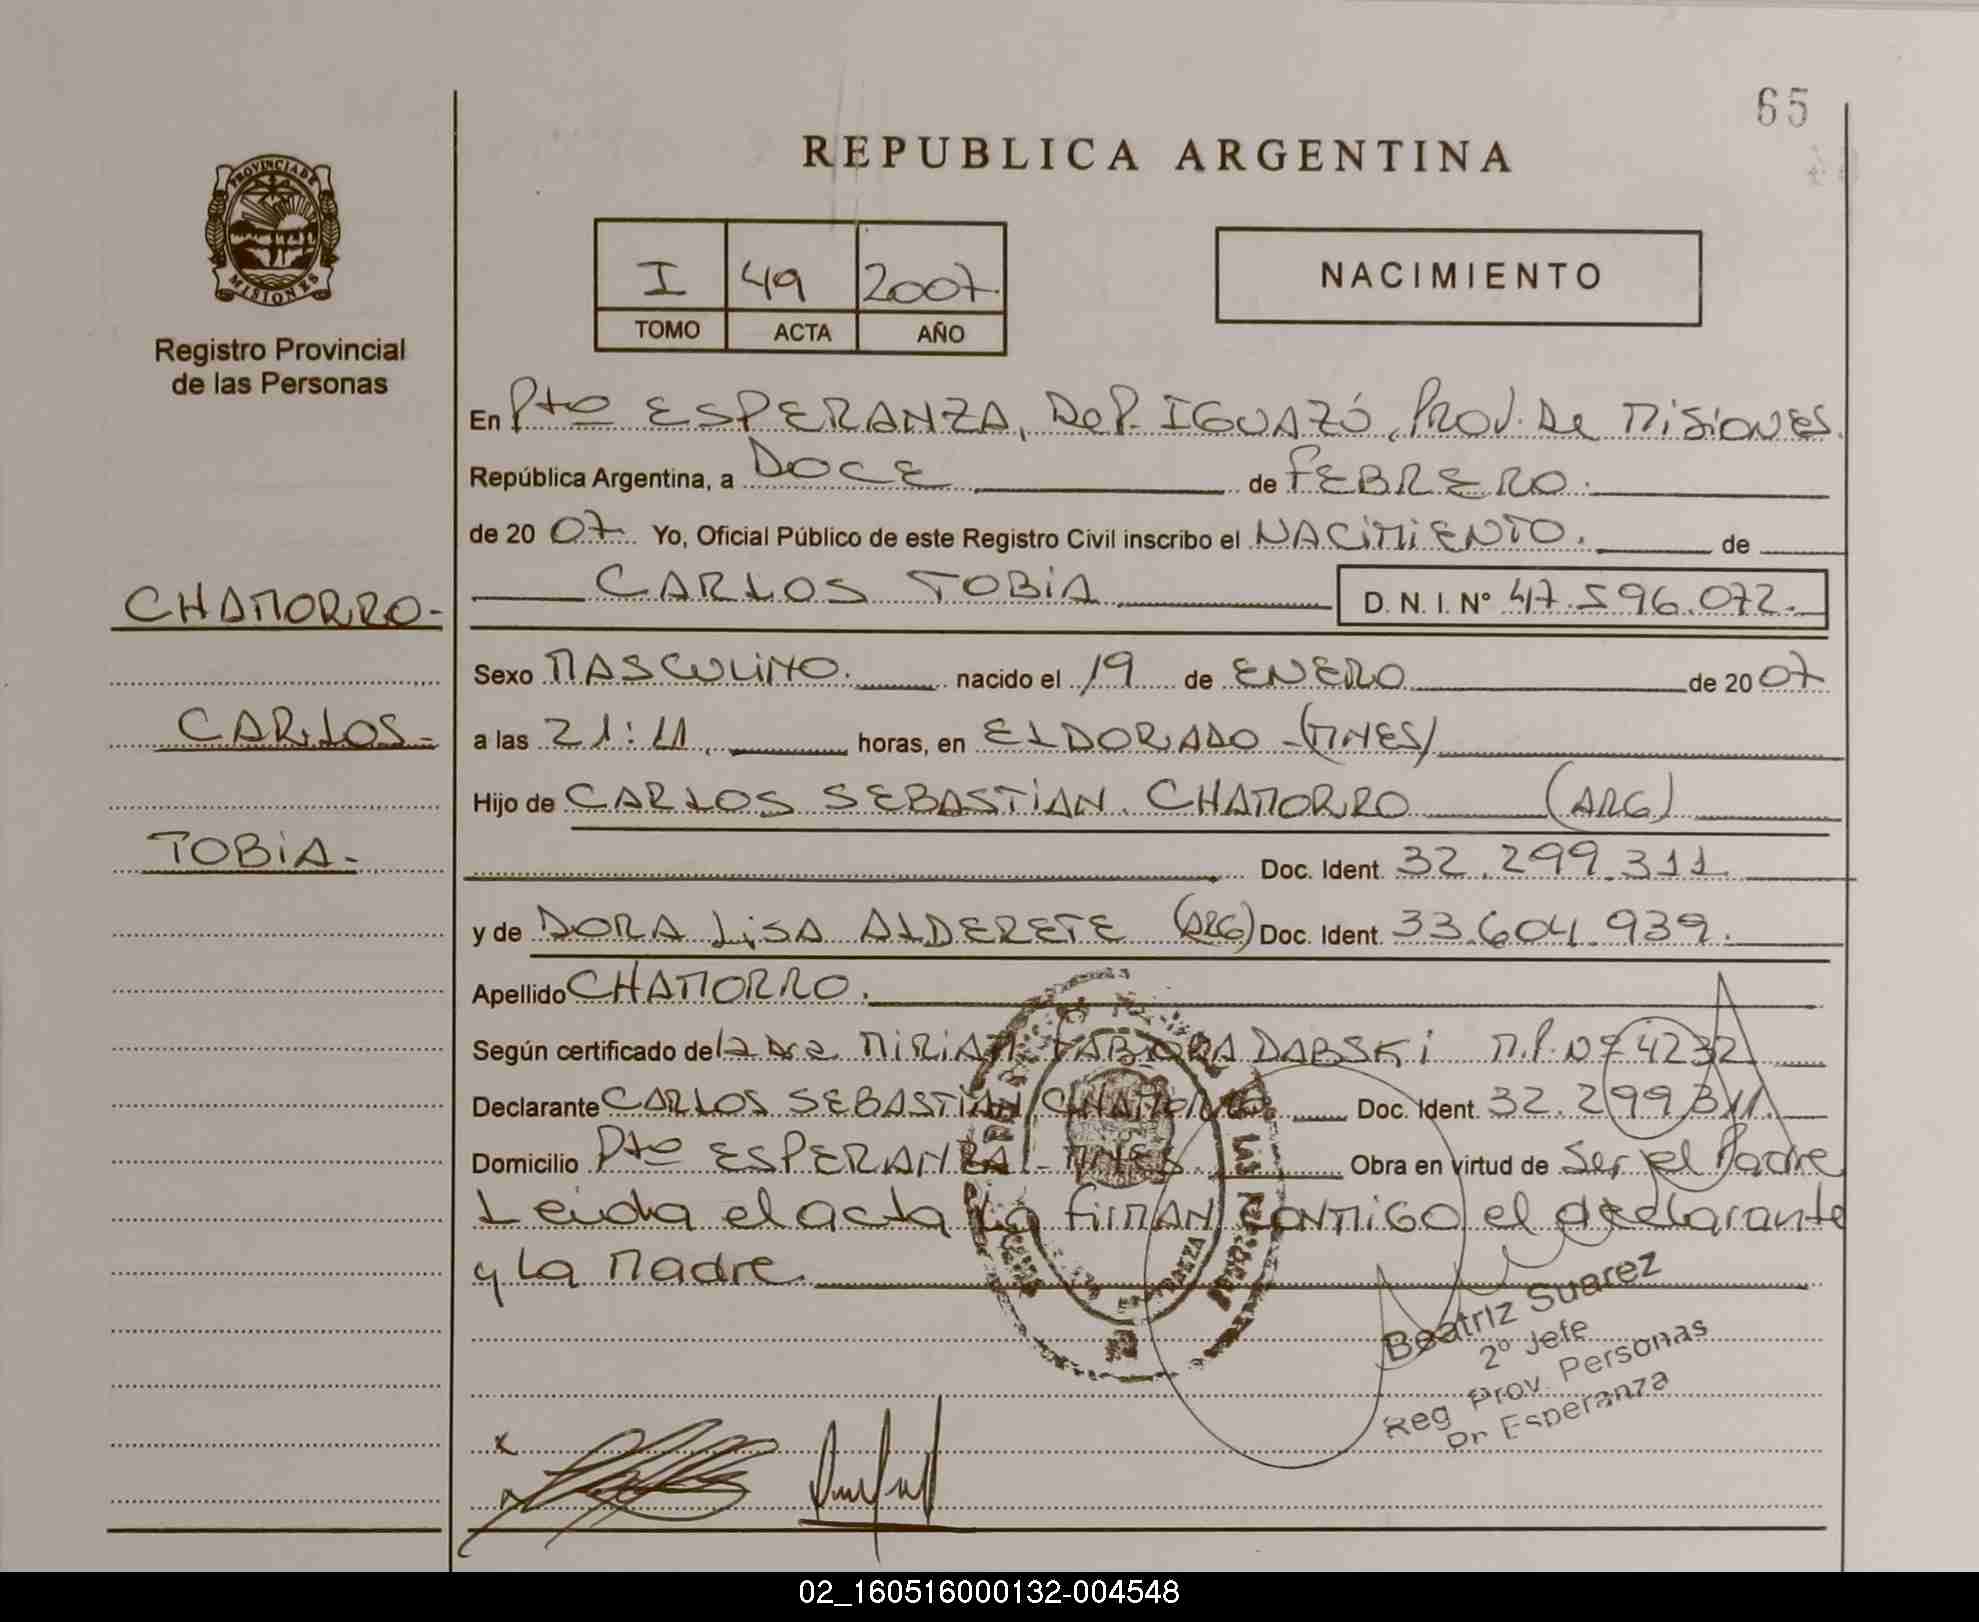 65
REPUBLICA ARGENTINA
PROVINCIA DE
MISIONES
Registro Provincial
de las Personas
I 49 2007
TOMO ACTA AÑO
NACIMIENTO
En Pto ESPERANZA, DeP. IGUAZÚ, Prov. De MiSiONES.
República Argentina, a DOCE de FEBRERO.
de 20 07 Yo, Oficial Público de este Registro Civil inscribo el NACiMiENTO. de
CARLOS TOBiA D. N. I. Nº 47.596.072.
CHAMORRO-
CARLOS-
TOBiA-
Sexo MASCULiNO. nacido el 19 de ENERO de 20 07
a las 21:11. horas, en ELDORADO-(MNES)
Hijo de CARLOS SEBASTiAN CHAMORRO (ARG)
Doc. Ident 32.299.311
y de DORA LiSA ALDERETE (ARG) Doc. Ident. 33.604.939.
Apellido CHAMORRO.
Según certificado de la Dra MiRiAM DABSKi M.P.Nº 4232
Declarante CARLOS SEBASTiAN CHAMORRO Doc. Ident. 32.299.311.
Domicilio Pto ESPERANZA-MNES. Obra en virtud de Ser el Padre
Leida el acta La FiRMAN CONMiGO el declarante
y La Madre.
Beatriz Suarez
2º Jefe
Reg Prov. Personas
Esperanza
02_160516000132-004548